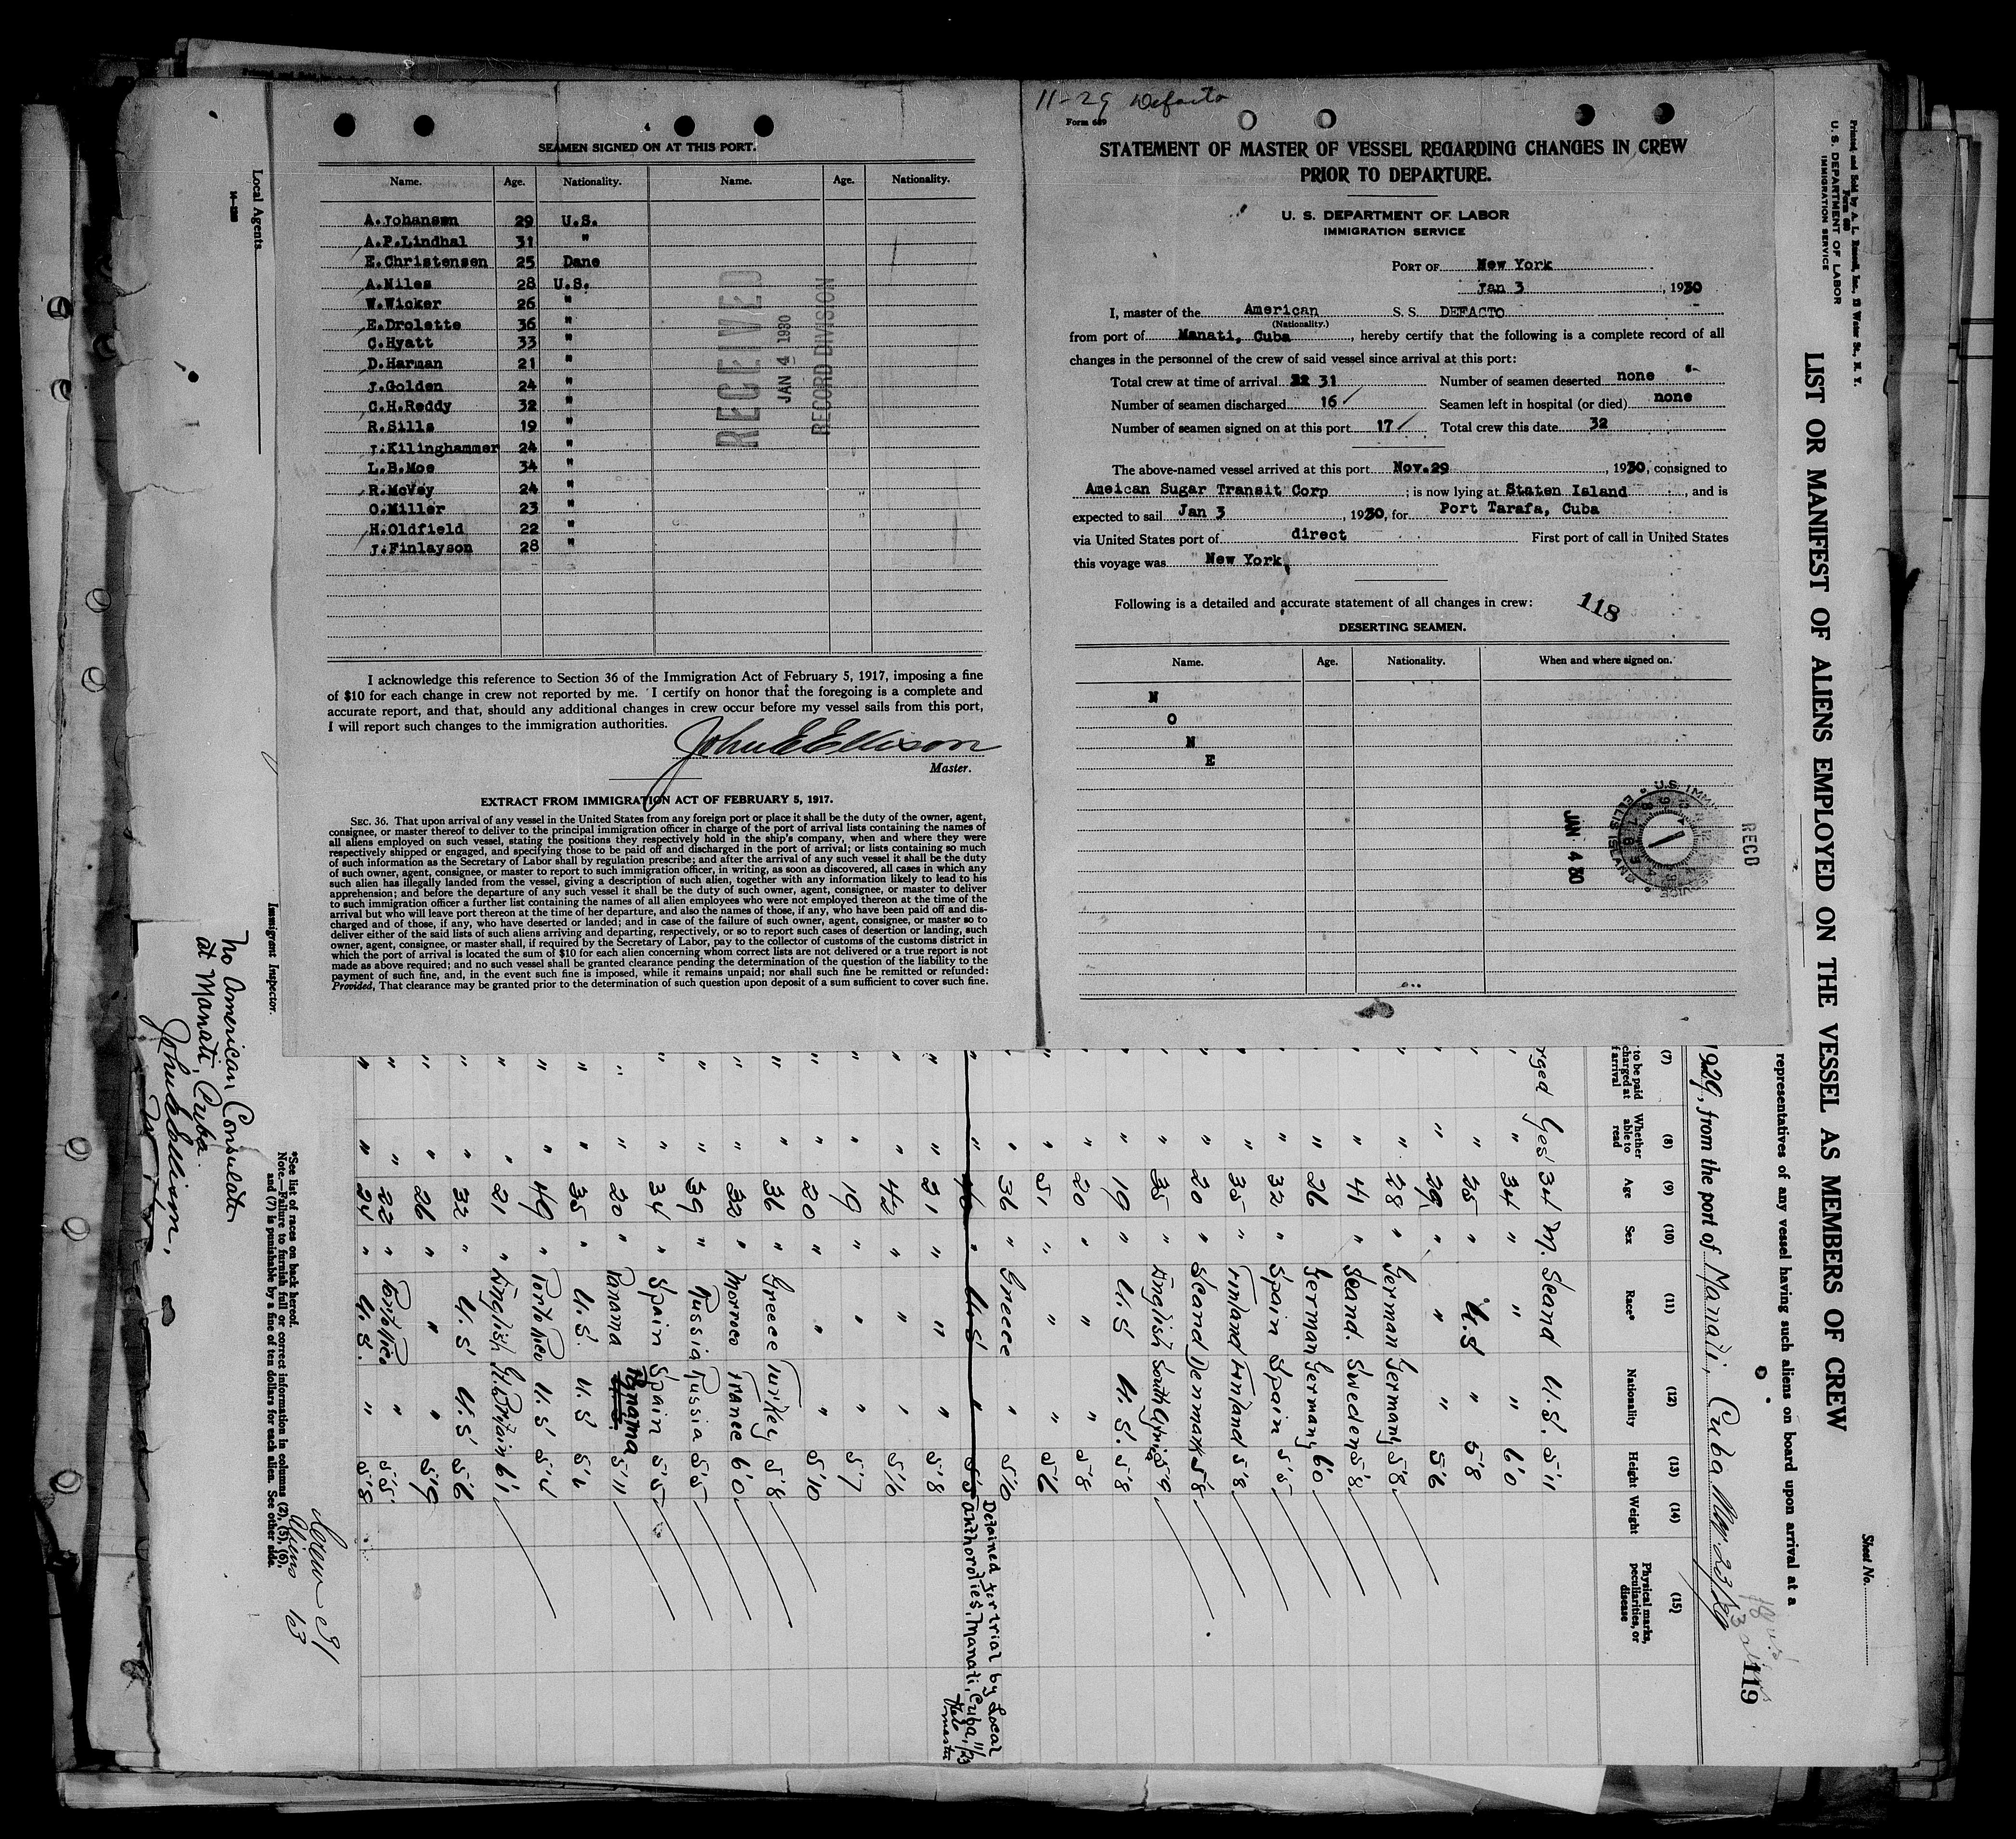 SEAMEN SIGNED ON AT THIS PORT.
Name. Age. Nationality. Name. Age. Nationality.
A.Johansen 29 U.S.
A.P.Lindhal 31 "
E.Christensen 25 Dane
A.Miles 28 U.S.
W.Wicker 26 "
E.Drolette 36 "
C.Hyatt 33 "
D.Harman 21 "
J.Golden 24 "
C.H.Reddy 32 "
R.Sills 19 "
J.Killinghammer 24 "
L.B.Moe 34 "
R.McVey 24 "
O.Miller 23 "
H.Oldfield 22 "
J.Finlayson 28 "
RECEIVED
JAN 4 1930
RECORD DIVISION
I acknowledge this reference to Section 36 of the Immigration Act of February 5, 1917, imposing a fine
of $10 for each change in crew not reported by me. I certify on honor that the foregoing is a complete and
accurate report, and that, should any additional changes in crew occur before my vessel sails from this port,
I will report such changes to the immigration authorities.
John E Ellison
Master.
EXTRACT FROM IMMIGRATION ACT OF FEBRUARY 5, 1917.
SEC. 36. That upon arrival of any vessel in the United States from any foreign port or place it shall be the duty of the owner, agent,
consignee, or master thereof to deliver to the principal immigration officer in charge of the port of arrival lists containing the names of
all aliens employed on such vessel, stating the positions they respectively hold in the ship's company, when and where they were
respectively shipped or engaged, and specifying those to be paid off and discharged in the port of arrival; or lists containing so much
of such information as the Secretary of Labor shall by regulation prescribe; and after the arrival of any such vessel it shall be the duty
of such owner, agent, consignee, or master to report to such immigration officer, in writing, as soon as discovered, all cases in which any
such alien has illegally landed from the vessel, giving a description of such alien, together with any information likely to lead to his
apprehension; and before the departure of any such vessel it shall be the duty of such owner, agent, consignee, or master to deliver
to such immigration officer a further list containing the names of all alien employees who were not employed thereon at the time of the
arrival but who will leave port thereon at the time of her departure, and also the names of those, if any, who have been paid off and dis-
charged and of those, if any, who have deserted or landed; and in case of the failure of such owner, agent, consignee, or master so to
deliver either of the said lists of such aliens arriving and departing, respectively, or so to report such cases of desertion or landing, such
owner, agent, consignee, or master shall, if required by the Secretary of Labor, pay to the collector of customs of the customs district in
which the port of arrival is located the sum of $10 for each alien concerning whom correct lists are not delivered or a true report is not
made as above required; and no such vessel shall be granted clearance pending the determination of the question of the liability to the
payment of such fine, and, in the event such fine is imposed, while it remains unpaid; nor shall such fine be remitted or refunded:
Provided, That clearance may be granted prior to the determination of such question upon deposit of a sum sufficient to cover such fine.
11-29 Defacto
Form 689
STATEMENT OF MASTER OF VESSEL REGARDING CHANGES IN CREW
PRIOR TO DEPARTURE.
U. S. DEPARTMENT OF LABOR
IMMIGRATION SERVICE
PORT OF New York
Jan 3, 1930
I, master of the American S. S. DEFACTO
(Nationality.)
from port of Manati, Cuba, hereby certify that the following is a complete record of all
changes in the personnel of the crew of said vessel since arrival at this port:
Total crew at time of arrival 31 Number of seamen deserted none
Number of seamen discharged 16 Seamen left in hospital (or died) none
Number of seamen signed on at this port 17 Total crew this date 32
The above-named vessel arrived at this port Nov.29, 1930, consigned to
Ameican Sugar Transit Corp; is now lying at Staten Island, and is
expected to sail Jan 3, 1930, for Port Tarafa, Cuba
via United States port of direct First port of call in United States
this voyage was New York
Following is a detailed and accurate statement of all changes in crew:
118
DESERTING SEAMEN.
Name. Age. Nationality. When and where signed on.
N
O
N
E
JAN 4 30
RECD
U.S. IMM
ELLIS ISLAND
Printed and Sold by
U. S. DEPARTMENT OF LABOR
IMMIGRATION SERVICE
Sheet No.
LIST OR MANIFEST OF ALIENS EMPLOYED ON THE VESSEL AS MEMBERS OF CREW
representatives of any vessel having such aliens on board upon arrival at a
119
1929, from the port of Manati, Cuba Nov. 23/29
(7) (8) (9) (10) (11) (12) (13) (14) (15)
to be paid charged at f arrival Whether able to read Age Sex Race* Nationality Height Weight Physical marks, peculiarities, or disease
rged Yes 34 M. Scand U.S. 5'11
" " 34 " " " 6'0
" " 25 " U.S " 5'8
" " 29 " " " 5'6
" " 28 " German Germany 5'8
" " 41 " Scand. Sweden 5'8
" " 26 " German Germany 6'0
" " 32 " Spain Spain 5'5
" " 35 " Finland Finland 5'8
" " 20 " Scand Denmark 5'8
" " 35 " English South Africa 5'9
" " 19 " U.S U.S. 5'8
" " 20 " " " 5'8
" " 51 " " " 5'6
" " 36 " Greece " 5'10
" " " U.S " 5'5 Detained for trial by Local
anthoroties, Manati, Cuba, 11/23
" " 21 " " " 5'8
" " 42 " " " 5'10
" " 19 " " " 5'7
" " 20 " " " 5'10
" " 36 " Greece Turkey 5'8
" " 32 " Morroco France 6'0
" " 39 " Russia Russia 5'5
" " 34 " Spain Spain 5'5
" " 20 " Panama Panama 5'11
" " 35 " U.S. U.S
" " 49 " Porto Rico U.S
" " 21 " English Gt. Britain 6'1
" " 32 " U.S U.S 5'6
" " 26 " " " 5'9
" " 22 " Porto Rico " 5'5
" " 24 " U.S. " 5'8
Crew 31
Aliens 13
*See list of races on back hereof.
Note.—Failure to furnish full or correct information in columns (2), (5), (6),
and (7) is punishable by a fine of ten dollars for each alien. See other side.
Immigrant Inspector.
Local Agents
No American Consulate
at Manati, Cuba.
John E Ellison,